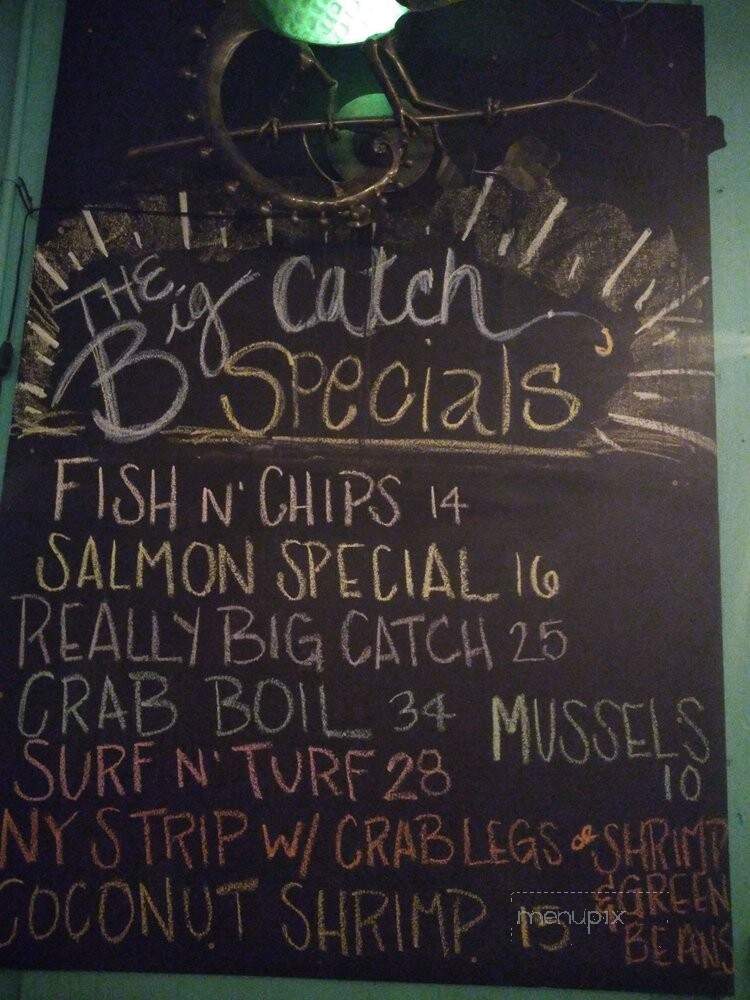 THE Big Catch
Specials
FISH N' CHIPS 14
SALMON SPECIAL 16
REALLY BIG CATCH 25
CRAB BOIL 34
MUSSELS
10
SURF N' TURF 28
NY STRIP W/ CRAB LEGS or SHRIMP
& GREEN
BEANS
COCONUT SHRIMP 15
menupix